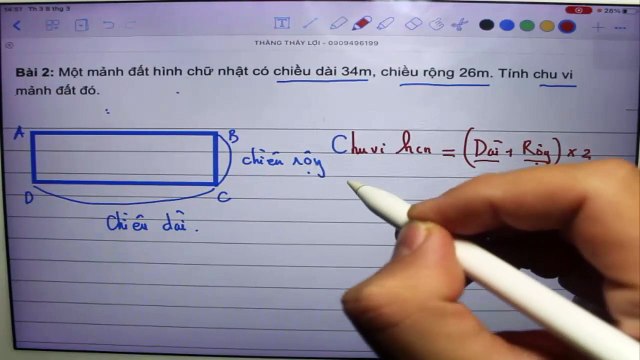 Th 3 8 thg 3
26%
THẮNG THẦY LỢI - 0909496199
Bài 2: Một mảnh đất hình chữ nhật có chiều dài 34m, chiều rộng 26m. Tính chu vi
mảnh đất đó.
A B
chiều rộng
Chu vi hcn = (Dài + Rộng) x 2
D C
Chiều dài.